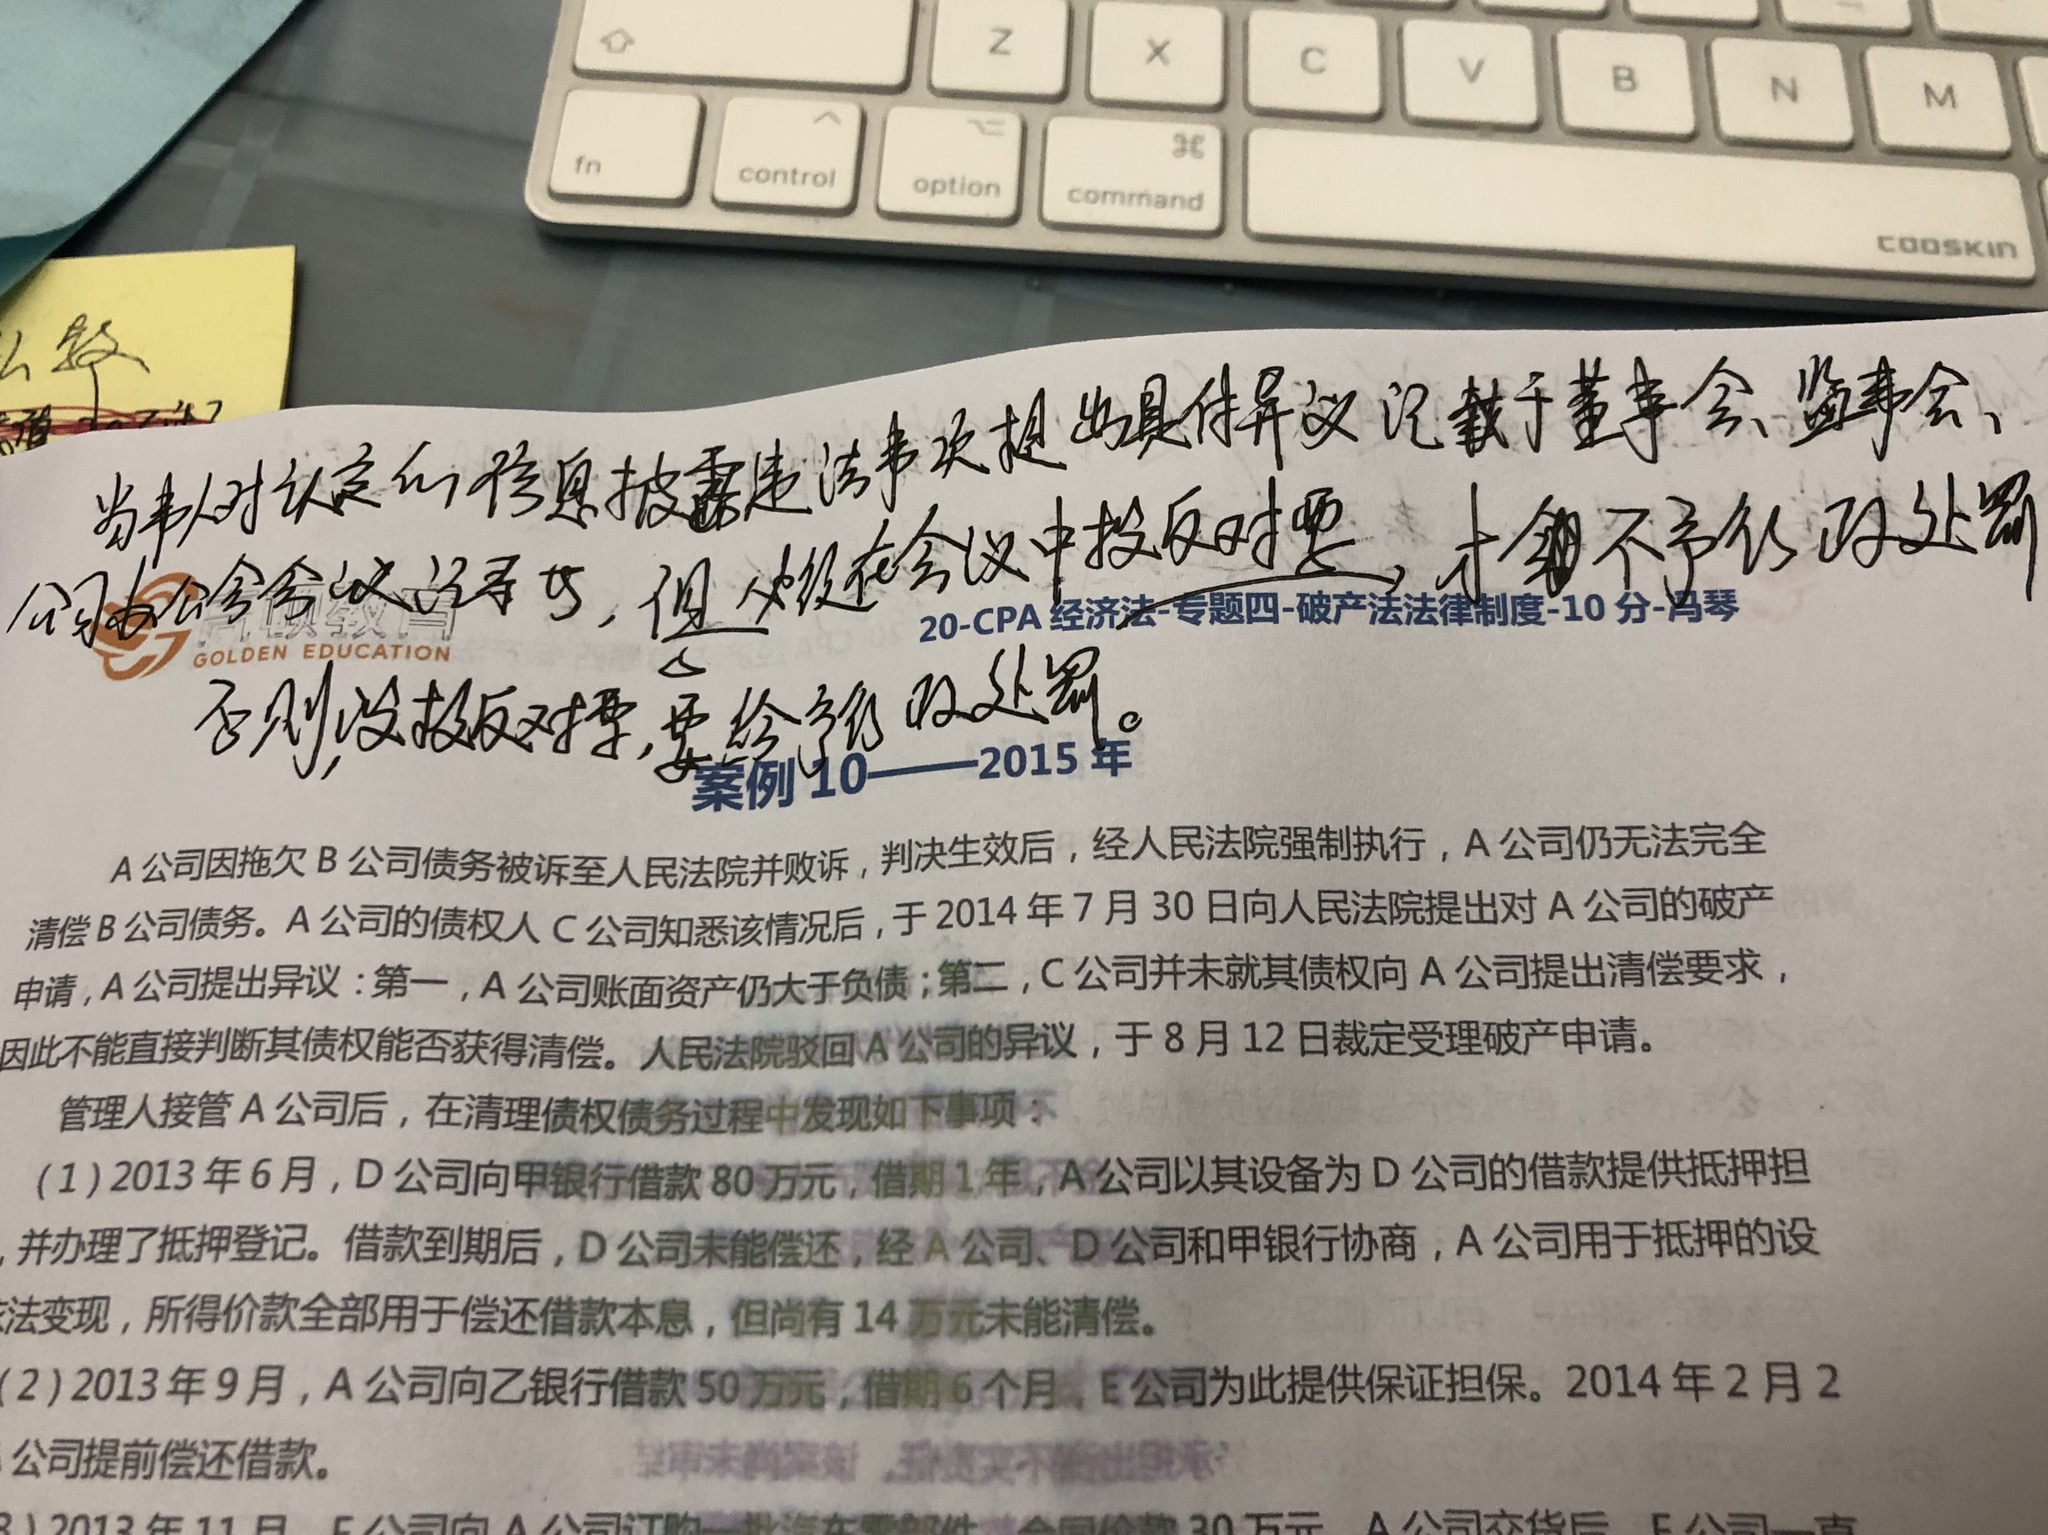 Z X C V B N M
fn control option command
COOSKIN
当事人对认定的信息披露违法事项提出具体异议记载于董事会、监事会、
公司办公会会议记录等，但必须在会议中投反对票，才 不予行政处罚
高顿教育
GOLDEN EDUCATION
20-CPA 经济法-专题四-破产法法律制度-10 分-冯琴
否则，没投反对票，要给予行政处罚。
案例 10——2015 年
A 公司因拖欠 B 公司债务被诉至人民法院并败诉，判决生效后，经人民法院强制执行，A 公司仍无法完全
清偿 B 公司债务。A 公司的债权人 C 公司知悉该情况后，于 2014 年 7 月 30 日向人民法院提出对 A 公司的破产
申请，A 公司提出异议：第一，A 公司账面资产仍大于负债；第二，C 公司并未就其债权向 A 公司提出清偿要求，
因此不能直接判断其债权能否获得清偿。人民法院驳回 A 公司的异议，于 8 月 12 日裁定受理破产申请。
管理人接管 A 公司后，在清理债权债务过程中发现如下事项：
（1）2013 年 6 月，D 公司向甲银行借款 80 万元，借期 1 年，A 公司以其设备为 D 公司的借款提供抵押担
，并办理了抵押登记。借款到期后，D 公司未能偿还，经 A 公司、D 公司和甲银行协商，A 公司用于抵押的设
依法变现，所得价款全部用于偿还借款本息，但尚有 14 万元未能清偿。
（2）2013 年 9 月，A 公司向乙银行借款 50 万元，借期 6 个月，E 公司为此提供保证担保。2014 年 2 月 2
公司提前偿还借款。
3）2013 年 11 月，F 公司向 A 公司订购一批汽车零部件，合同价款 30 万元，A 公司交货后，F 公司一直